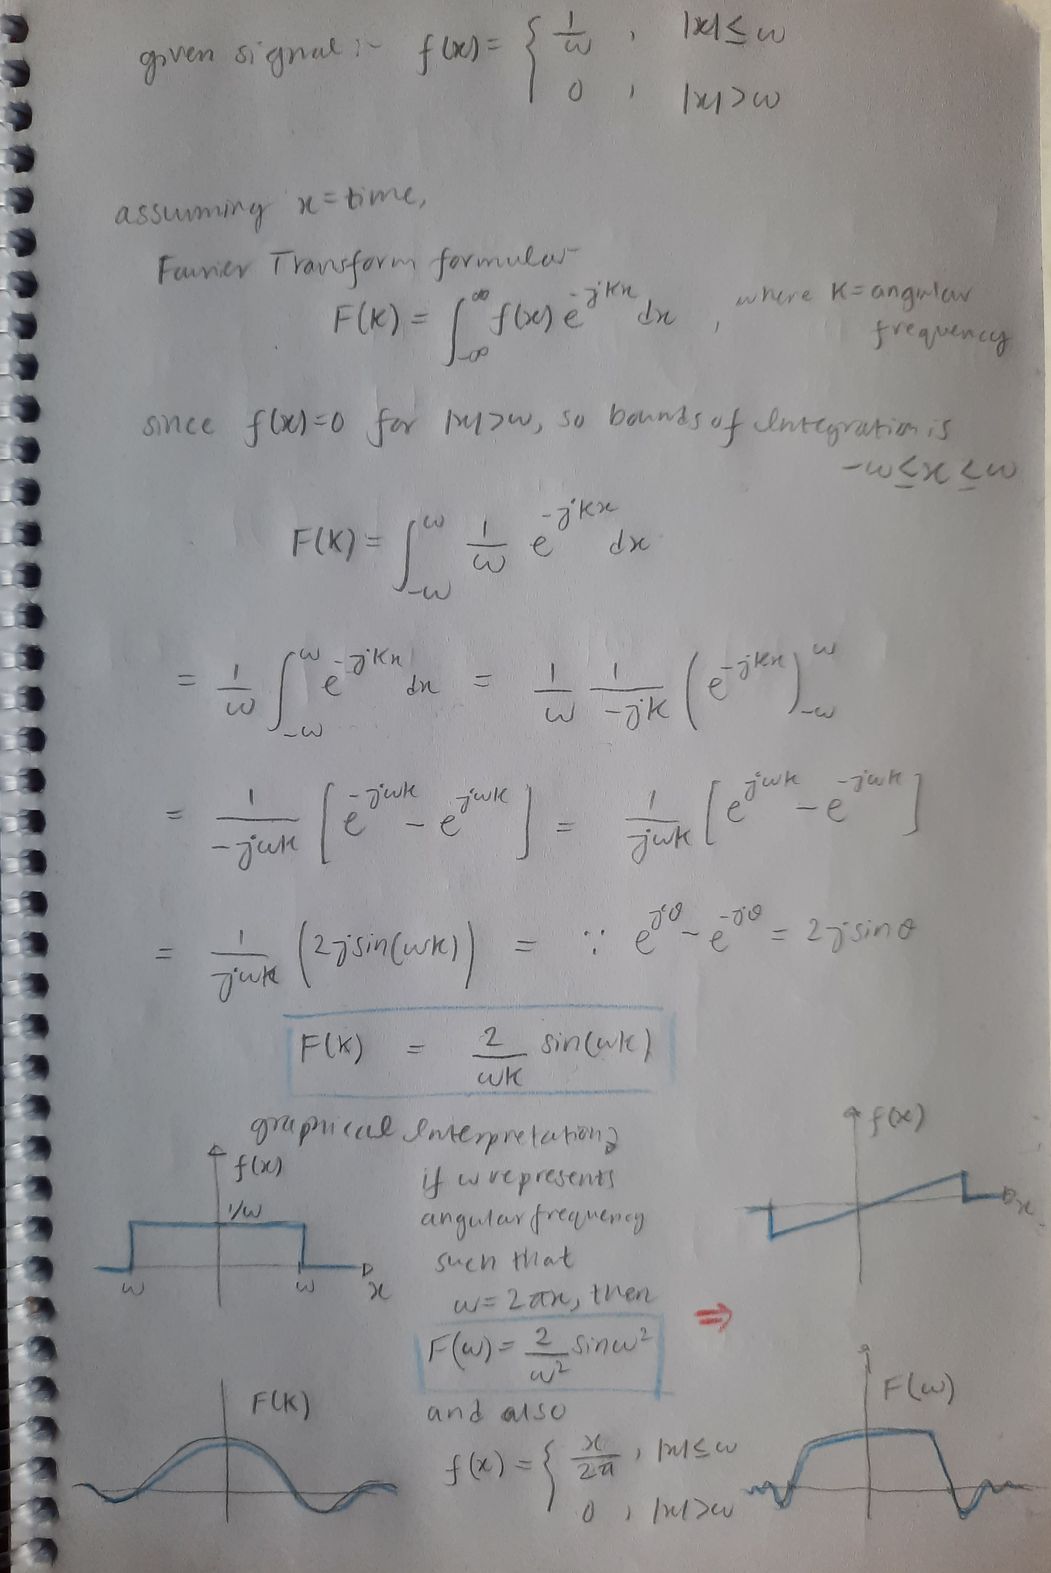 given signal :- f(x) = { 1/ω , |x| ≤ ω
0 , |x| > ω
assuming x = time,
Fourier Transform formula-
F(K) = ∫_{-∞}^{∞} f(x) e^{-jKx} dx , where K = angular
frequency
since f(x)=0 for |x|>ω, so bounds of Integration is
-ω ≤ x ≤ ω
F(K) = ∫_{-ω}^{ω} 1/ω e^{-jKx} dx
= 1/ω ∫_{-ω}^{ω} e^{-jKx} dx = 1/ω 1/-jK (e^{-jKx})_{-ω}^{ω}
= 1/-jωK [e^{-jωK} - e^{jωK}] = 1/jωK [e^{jωK} - e^{-jωK}]
= 1/jωK (2jsin(ωK)) = ∵ e^{jθ} - e^{-jθ} = 2jsinθ
F(K) = 2/ωK sin(ωK)
graphical Interpretation,
f(x)
1/ω
ω ω x
if ω represents
angular frequency
such that
ω = 2πx, then
F(ω) = 2/ω² sinω²
and also
f(x) = { x/2π , |x| ≤ ω
0 , |x| > ω
F(K)
f(x)
x
⇒
F(ω)